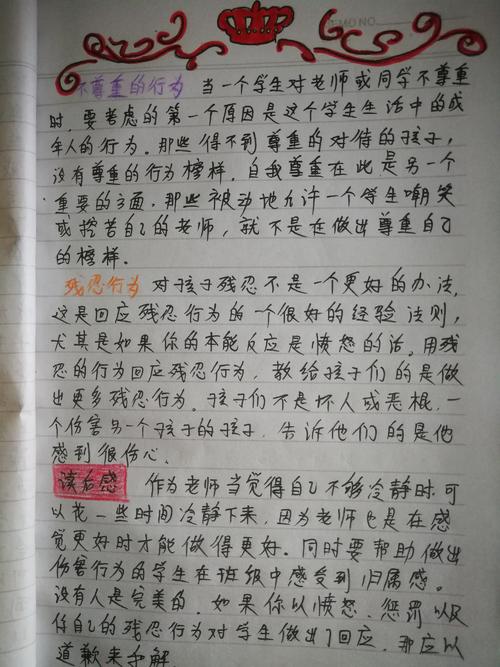 MEMO NO.
不尊重的行为 当一个学生对老师或同学不尊重
时,要考虑的第一个原因是这个学生生活中的成
年人的行为。那些得不到尊重的对待的孩子,
没有尊重的行为榜样。自我尊重在此是另一个
重要的方面,那些被动地允许一个学生嘲笑
或挖苦自己的老师,就不是在做出尊重自己
的榜样。
残忍行为 对孩子残忍不是一个更好的办法,
这是回应残忍行为的一个很好的经验法则,
尤其是如果你的本能反应是愤怒的话。用残
忍的行为回应残忍行为,教给孩子们的是做
出更多残忍行为。孩子们不是坏人或恶棍,一
个伤害另一个孩子的孩子,告诉他们的是他
感到很伤心。
读后感 作为老师当觉得自己不够冷静时,可
以花一些时间冷静下来,因为老师也是在感
觉更好时才能做得更好。同时要帮助做出
伤害行为的学生在班级中感受到归属感。
没有人是完美的,如果你以愤怒、惩罚以及
你自己的残忍行为对学生做出了回应,那应以
道歉来和解。